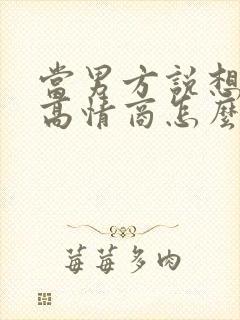 當男方說想
高情商怎麼
莓莓多肉